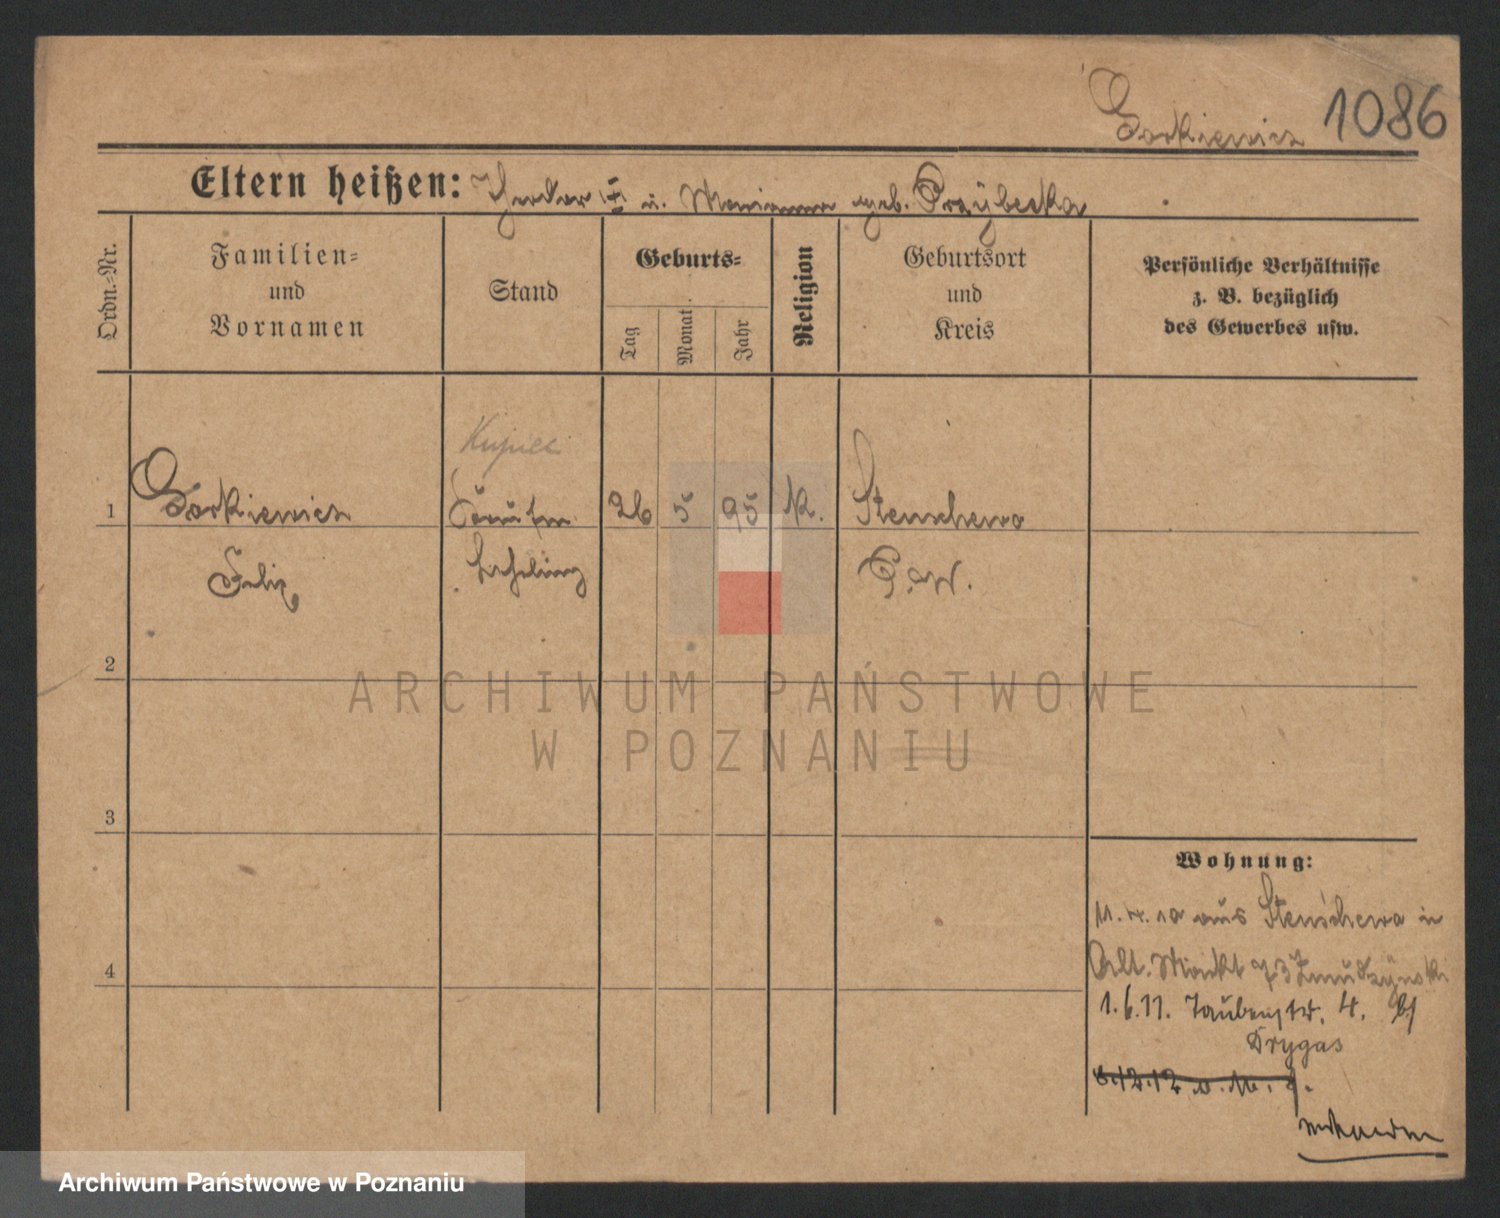 Gorkiewicz 1086
Eltern heißen: Theodor † u. Marianna geb. Przybecka
Ordn.-Nr.
Familien-
und
Vornamen
Stand
Geburts-
Tag
Monat
Jahr
Religion
Geburtsort
und
Kreis
Persönliche Verhältnisse
z. B. bezüglich
des Gewerbes usw.
Kupiec
1 Gorkiewicz Kaufm. 26 5 95 K. Stenschewo
Felix Lehrling P.W.
2
ARCHIWUM PAŃSTWOWE
W POZNANIU
3
Wohnung:
11.4.10 aus Stenschewo in
4 Alt. Markt 73 Zmudzynski
1.6.11. Taubenstr. 4. b/
Drygas
8.12.12
Archiwum Państwowe w Poznaniu